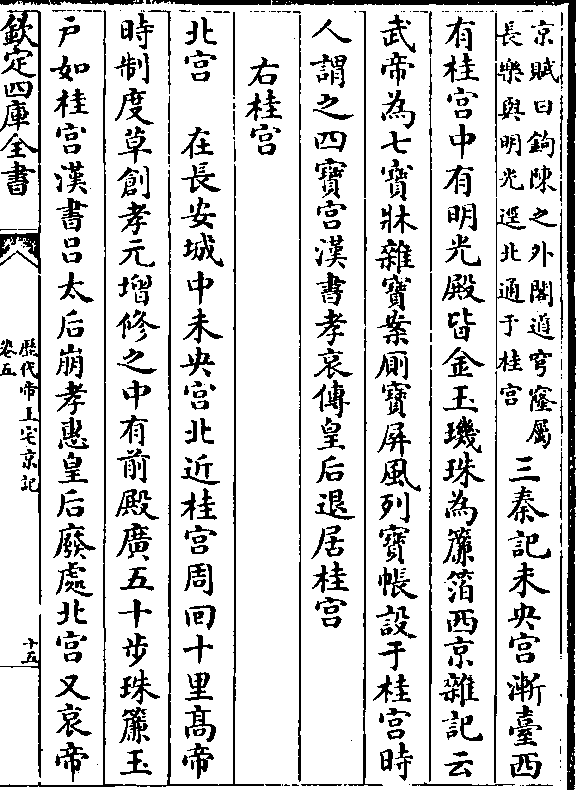 京賦曰鉤陳之外閣道穹窿屬
長樂與明光逕北通于桂宮
三秦記未央宮漸臺西
有桂宮中有明光殿皆金玉璣珠為簾箔西京雜記云
武帝為七寶牀雜寶案廁寶屏風列寶帳設于桂宮時
人謂之四寶宮漢書孝哀傳皇后退居桂宮
右桂宮
北宮 在長安城中未央宮北近桂宮周回十里髙帝
時制度草創孝元增修之中有前殿廣五十步珠簾玉
戶如桂宮漢書吕太后崩孝惠皇后廢處北宮又哀帝
欽定四庫全書
歷代帝王宅京記
卷五
十五